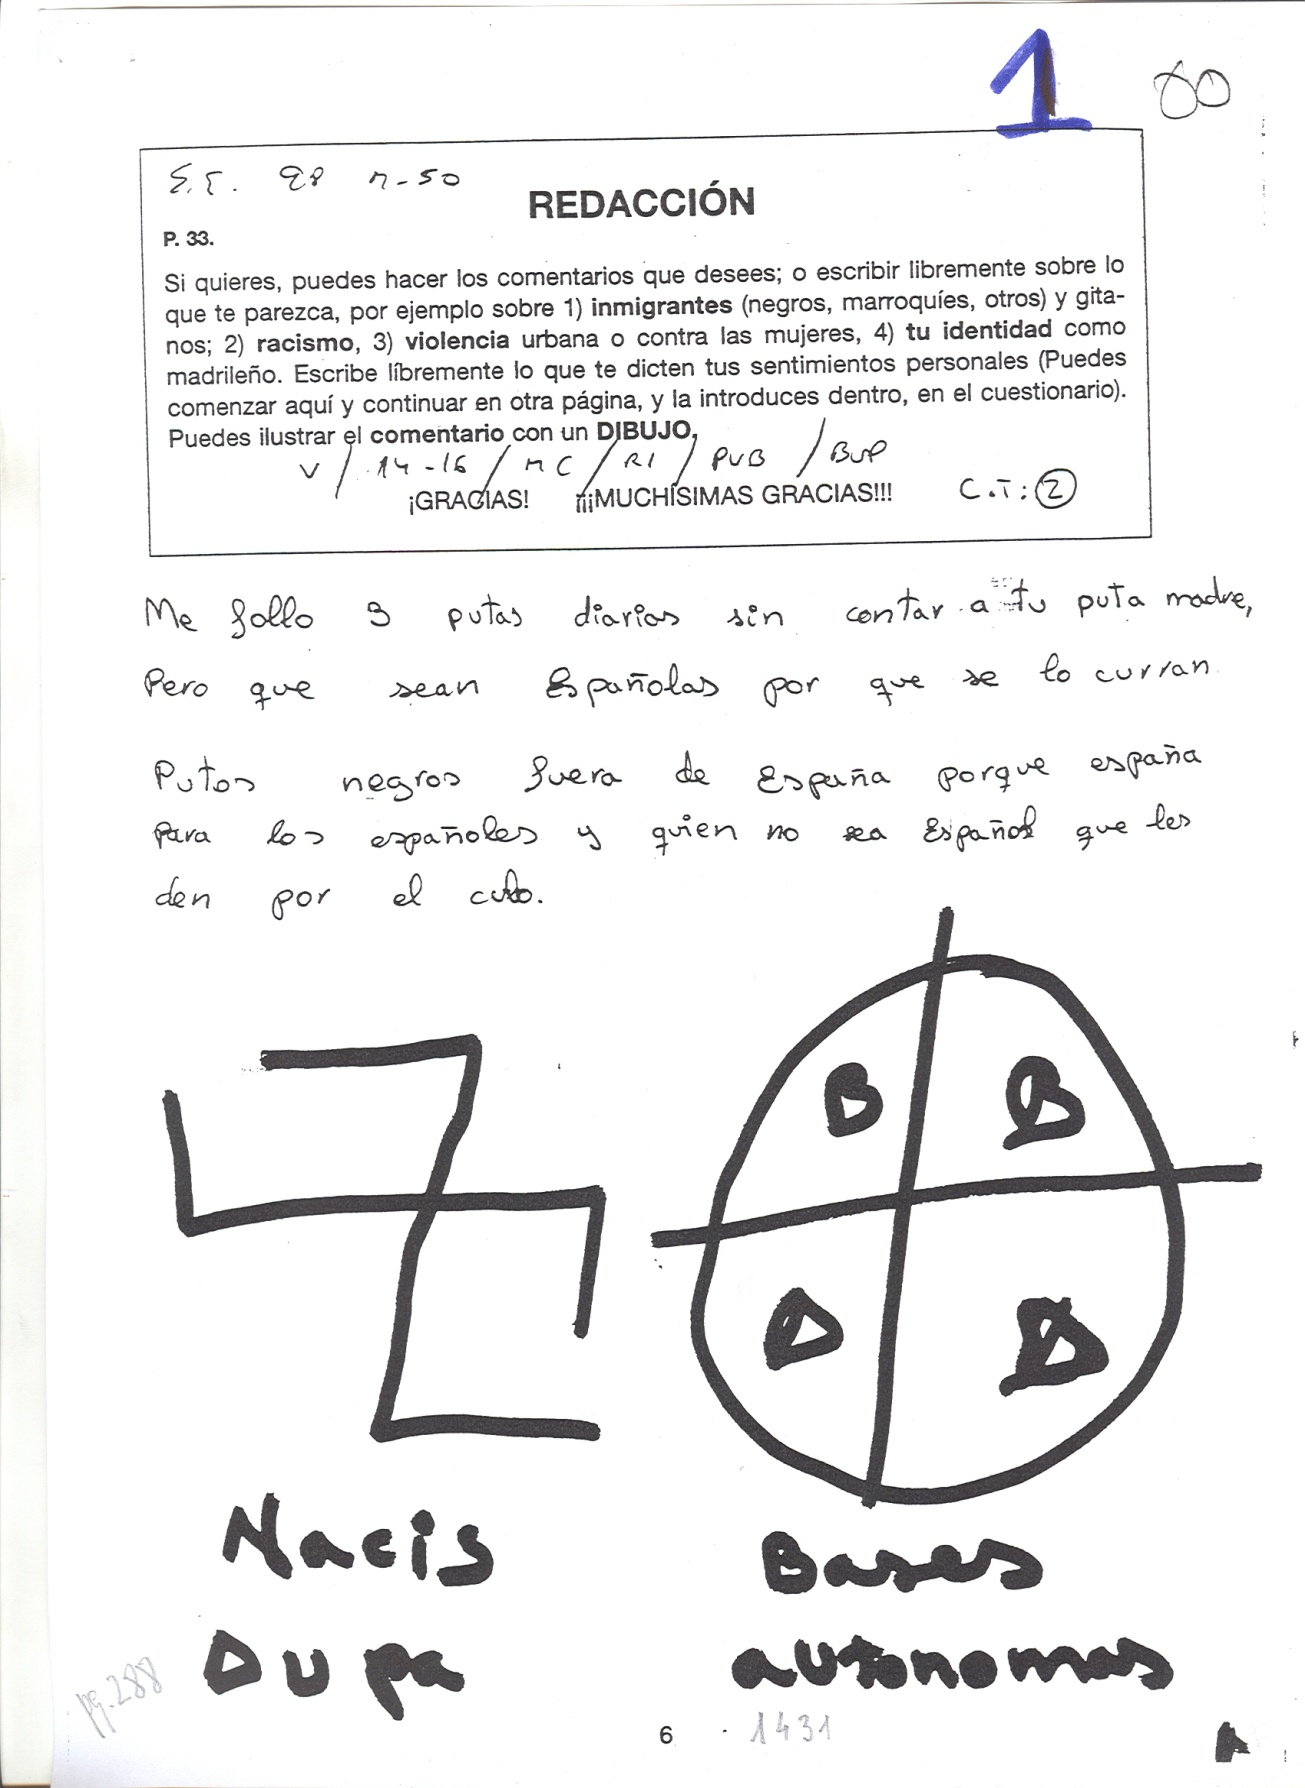 1 80
S.T. 98 M-50
REDACCIÓN
P. 33.
Si quieres, puedes hacer los comentarios que desees; o escribir libremente sobre lo
que te parezca, por ejemplo sobre 1) inmigrantes (negros, marroquíes, otros) y gita-
nos; 2) racismo, 3) violencia urbana o contra las mujeres, 4) tu identidad como
madrileño. Escribe líbremente lo que te dicten tus sentimientos personales (Puedes
comenzar aquí y continuar en otra página, y la introduces dentro, en el cuestionario).
Puedes ilustrar el comentario con un DIBUJO.
V / 14-16 / MC / RI / PUB / BUP
¡GRACIAS! ¡¡¡MUCHÍSIMAS GRACIAS!!! C.T: 2
Me follo 3 putas diarias sin contar a tu puta madre,
Pero que sean Españolas por que se lo curran
Putos negros fuera de España porque españa
para los españoles y quien no sea Español que les
den por el culo.
B B
D B
Nacis Bases
Dupa autonomas
pg.288
6 1431